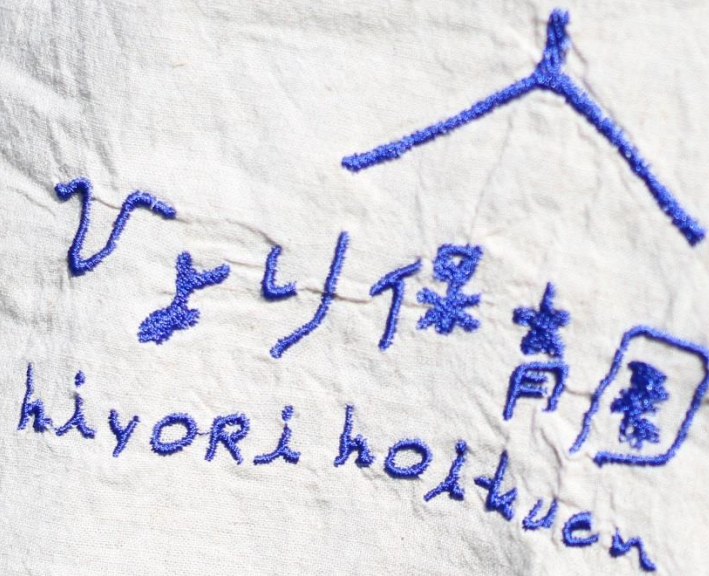 ひより保育園
hiyoRi hoikuen